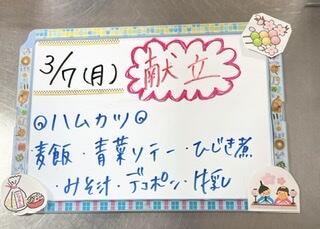 3/7(月) 献立
◎ハムカツ◎
麦飯・青菜ソテー・ひじき煮
・みそ汁・デコポン・牛乳